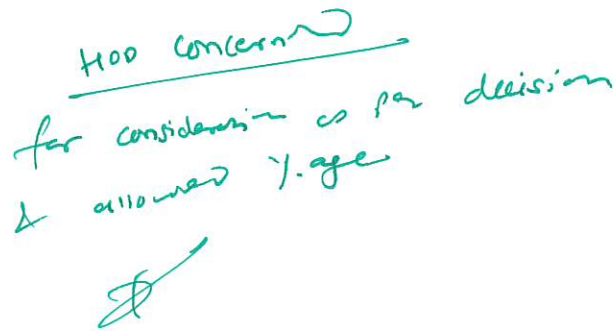 HOD concerned
for consideration as per decision
& allowed %age